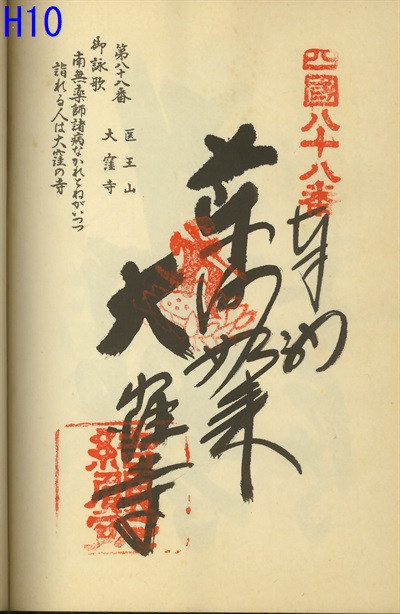 H10
四國八十八番
奉納
薬師如来
大窪寺
第八十八番 医王山
大窪寺
御詠歌
南無薬師諸病なかれとねがいつつ
詣れる人は大窪の寺